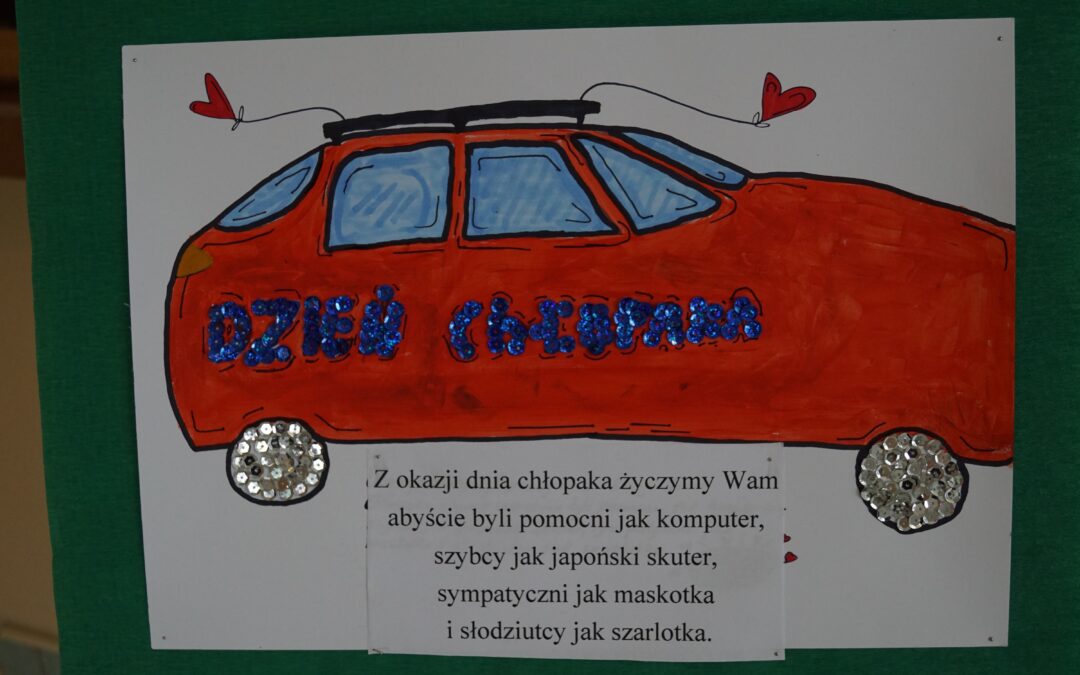 DZIEŃ CHŁOPAKA
Z okazji dnia chłopaka życzymy Wam
abyście byli pomocni jak komputer,
szybcy jak japoński skuter,
sympatyczni jak maskotka
i słodziutcy jak szarlotka.